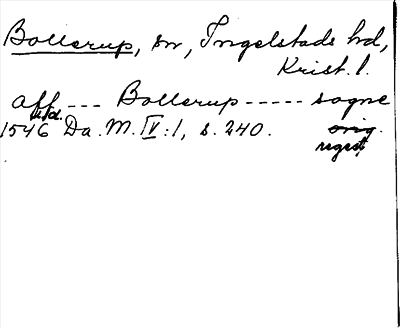 Bollerup, sn, Ingelstads hd,
Krist. l.
aff --- Bollerup ----- sogne
1546 Da. M. IV:1, s. 240. orig.
regest